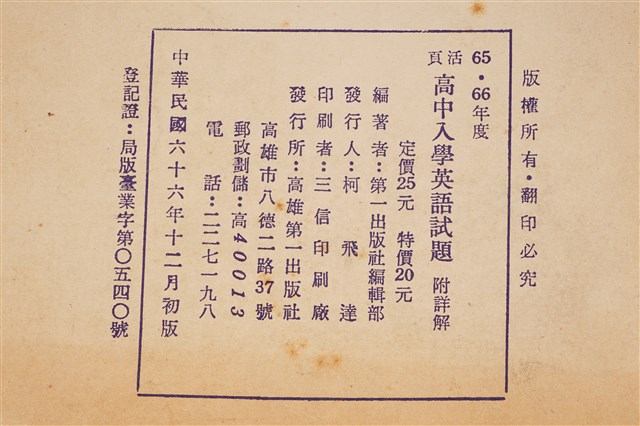 版權所有•翻印必究
65•66年度
活頁 高中入學英語試題 附詳解
定價25元 特價20元
編著者：第一出版社編輯部
發行人：柯飛達
印刷者：三信印刷廠
發行所：高雄第一出版社
高雄市八德二路37號
郵政劃儲：高40013
電話：二二七一九八
中華民國六十六年十二月初版
登記證：局版臺業字第〇五四〇號